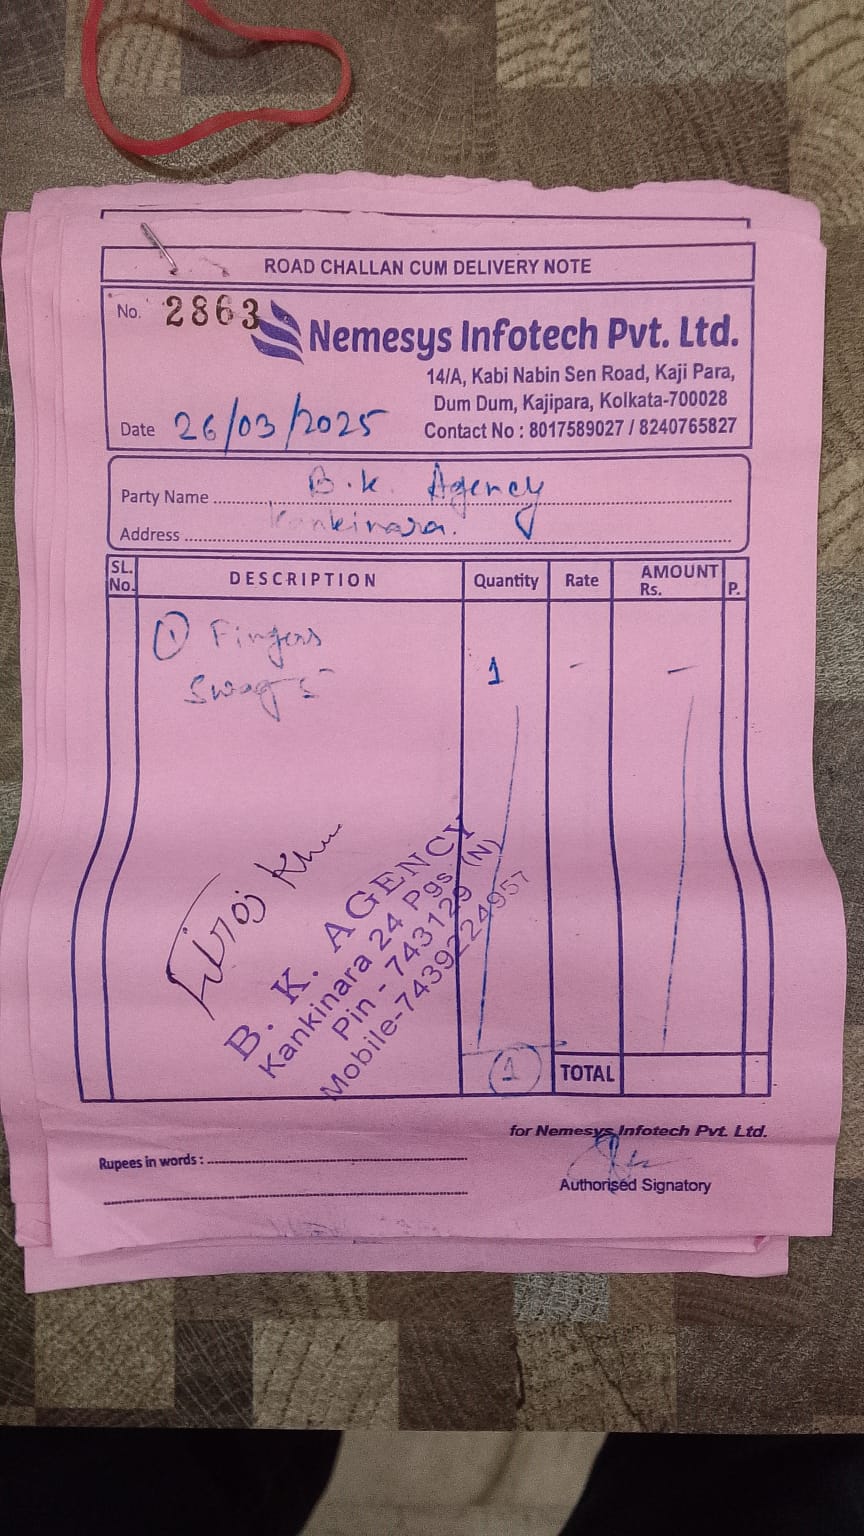 ROAD CHALLAN CUM DELIVERY NOTE
No. 2863
Nemesys Infotech Pvt. Ltd.
14/A, Kabi Nabin Sen Road, Kaji Para,
Dum Dum, Kajipara, Kolkata-700028
Date 26/03/2025 Contact No : 8017589027 / 8240765827
Party Name B.K. Agency
Address Kankinara.
SL. No. DESCRIPTION Quantity Rate AMOUNT Rs. P.
① Fingers
Swag 5 1 - -
Firoj Khan
B. K. AGENCY
Kankinara 24 Pgs (N)
Pin - 743129
Mobile-7439224957
1 TOTAL
for Nemesys Infotech Pvt. Ltd.
Rupees in words :
Authorised Signatory